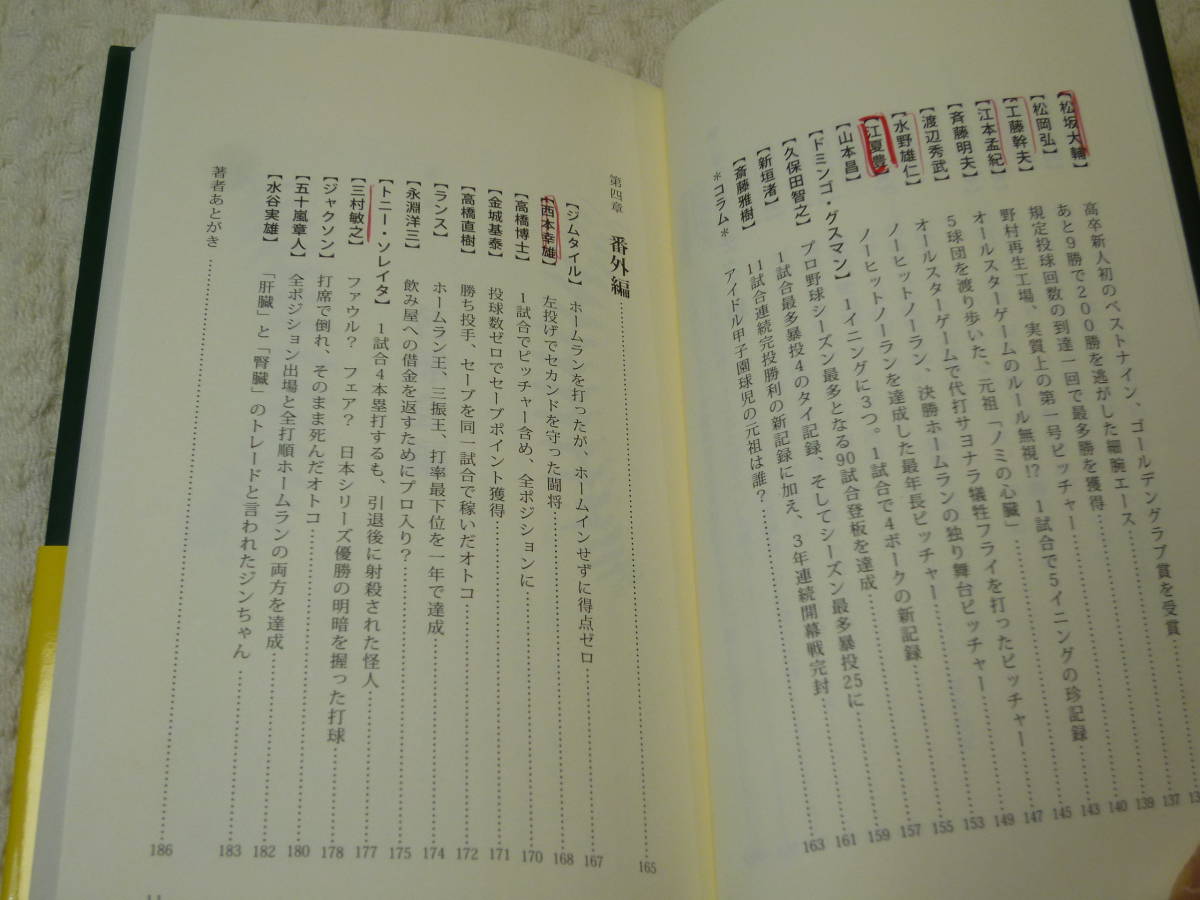 【松坂大輔】 高卒新人初のベストナイン、ゴールデングラブ賞を受賞
【松岡弘】 あと9勝で200勝を逃がした細腕エース……137
【工藤幹夫】 規定投球回数の到達一回で最多勝を獲得……139
【江本孟紀】 野村再生工場、実質上の第一号ピッチャー……140
【斉藤明夫】 オールスターゲームのルール無視!? 1試合で5イニングの珍記録……143
【渡辺秀武】 5球団を渡り歩いた、元祖「ノミの心臓」……145
【水野雄仁】 オールスターゲームで代打サヨナラ犠牲フライを打ったピッチャー……147
【江夏豊】 ノーヒットノーラン、決勝ホームランの独り舞台ピッチャー……149
【山本昌】 ノーヒットノーランを達成した最年長ピッチャー……153
【ドミンゴ・グスマン】 1イニングに3つ。1試合で4ボークの新記録……155
【久保田智之】 プロ野球シーズン最多となる90試合登板を達成……157
【新垣渚】 1試合最多暴投4のタイ記録、そしてシーズン最多暴投25に……159
【斎藤雅樹】 11試合連続完投勝利の新記録に加え、3年連続開幕戦完封……161
＊コラム＊ アイドル甲子園球児の元祖は誰？……163
第四章 番外編……165
【ジムタイル】 ホームランを打ったが、ホームインせずに得点ゼロ……167
【西本幸雄】 左投げでセカンドを守った闘将……168
【高橋博士】 1試合でピッチャー含め、全ポジションに……170
【金城基泰】 投球数ゼロでセーブポイント獲得……171
【高橋直樹】 勝ち投手、セーブを同一試合で稼いだオトコ……172
【ランス】 ホームラン王、三振王、打率最下位を一年で達成……174
【永淵洋三】 飲み屋への借金を返すためにプロ入り？……175
【トニー・ソレイタ】 1試合4本塁打するも、引退後に射殺された怪人……177
【三村敏之】 ファウル？ フェア？ 日本シリーズ優勝の明暗を握った打球……178
【ジャクソン】 打席で倒れ、そのまま死んだオトコ……180
【五十嵐章人】 全ポジション出場と全打順ホームランの両方を達成……182
【水谷実雄】 「肝臓」と「腎臓」のトレードと言われたジンちゃん……183
著者あとがき……186